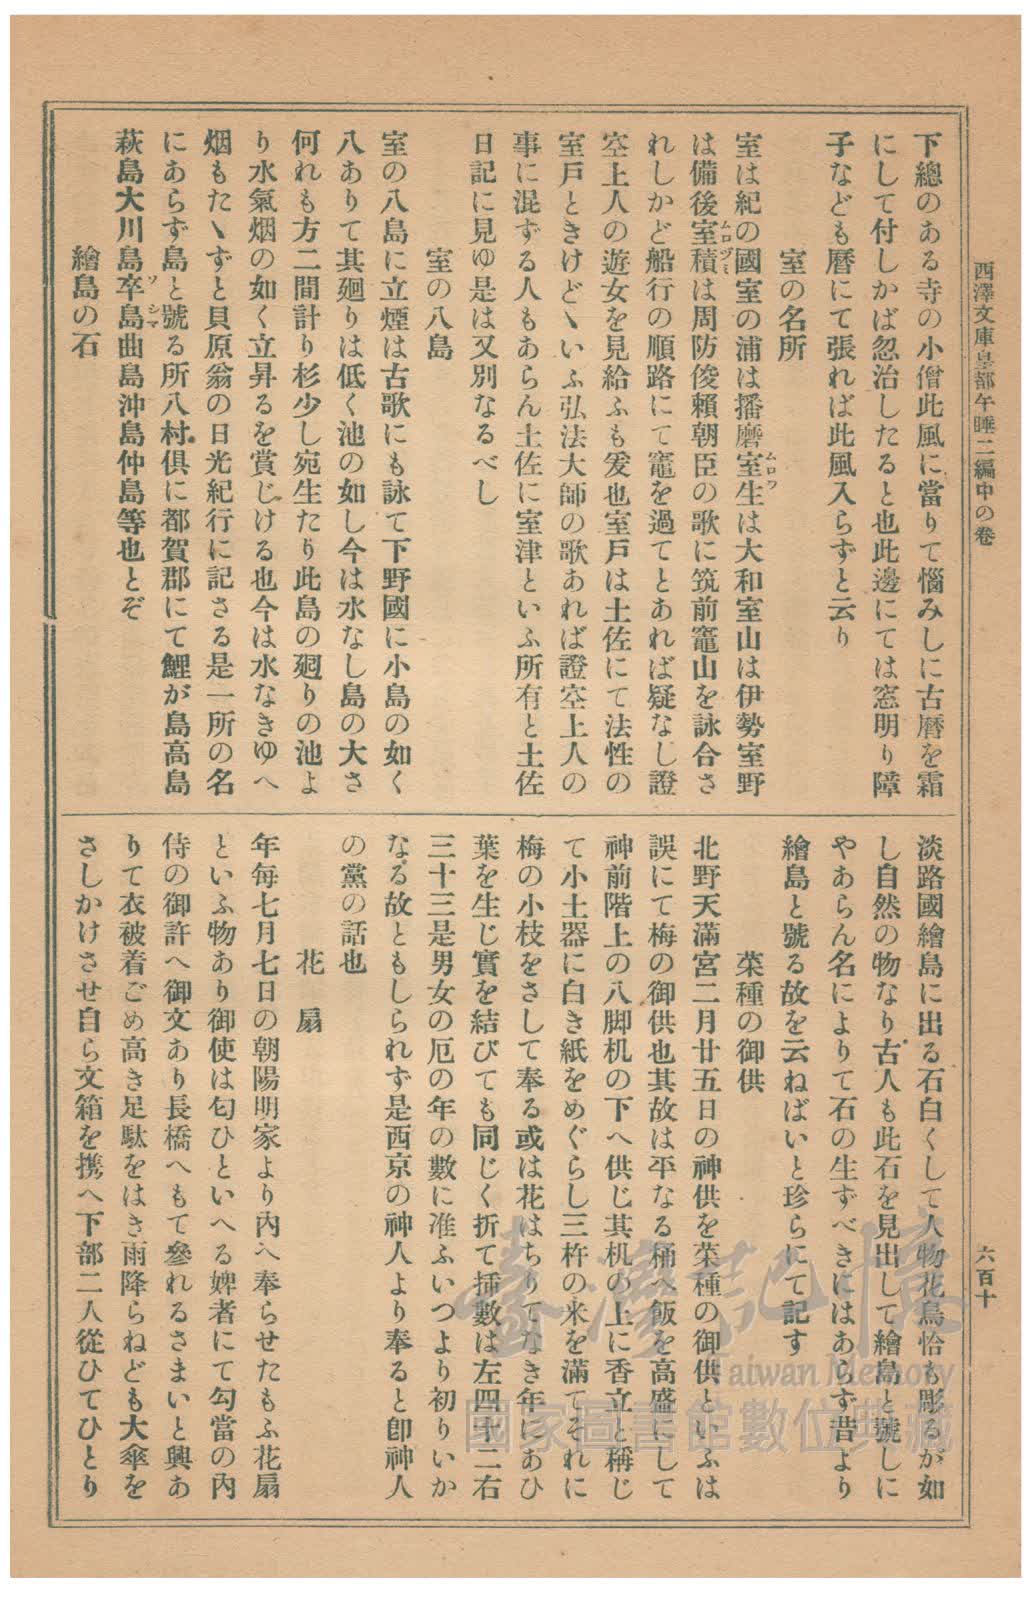 西澤文庫皇都午睡二編中の卷
六百十
下總のある寺の小僧此風に當りて惱みしに古曆を霜
にして付しかば忽治したると也此邊にては窓明り障
子なども曆にて張れば此風入らずと云り
室の名所
室は紀の國室の浦は播磨室生は大和室山は伊勢室野
ムロワ
は備後室積は周防俊賴朝臣の歌に筑前竈山を詠合さ
ムロヅミ
れしかど船行の順路にて竈を過てとあれば疑なし證
空上人の遊女を見給ふも爰也室戸は土佐にて法性の
室戸ときけどゝいふ弘法大師の歌あれば證空上人の
事に混ずる人もあらん土佐に室津といふ所有と土佐
日記に見ゆ是は又別なるべし
室の八島
室の八島に立煙は古歌にも詠て下野國に小島の如く
八ありて其廻りは低く池の如し今は水なし島の大さ
何れも方二間計り杉少し宛生たり此島の廻りの池よ
り水氣烟の如く立昇るを賞じける也今は水なきゆへ
烟もたゝずと貝原翁の日光紀行に記さる是一所の名
にあらず島と號る所八村俱に都賀郡にて鯉が島高島
萩島大川島卒島曲島沖島仲島等也とぞ
ソシマ
繪島の石
淡路國繪島に出る石白くして人物花鳥恰も彫るが如
し自然の物なり古人も此石を見出して繪島と號しに
やあらん名によりて石の生ずべきにはあらず昔より
繪島と號る故を云ねばいと珍らにて記す
菜種の御供
北野天滿宮二月廿五日の神供を菜種の御供といふは
誤にて梅の御供也其故は平なる桶へ飯を高盛にして
神前階上の八脚机の下へ供じ其机の上に香立と稱じ
て小土器に白き紙をめぐらし三杵の米を滿てそれに
梅の小枝をさして奉る或は花はちりてなき年にあひ
葉を生じ實を結びても同じく折て揷數は左四十二右
三十三是男女の厄の年の數に准ふいつより初りいか
なる故ともしられず是西京の神人より奉ると卽神人
の黨の話也
花扇
年每七月七日の朝陽明家より內へ奉らせたもふ花扇
といふ物あり御使は匂ひといへる婢者にて勾當の內
侍の御許へ御文あり長橋へもて參れるさまいと興あ
りて衣被着ごめ高き足駄をはき雨降らねども大傘を
さしかけさせ自ら文箱を携へ下部二人從ひてひとり
臺灣記憶
Taiwan Memory
國家圖書館數位典藏